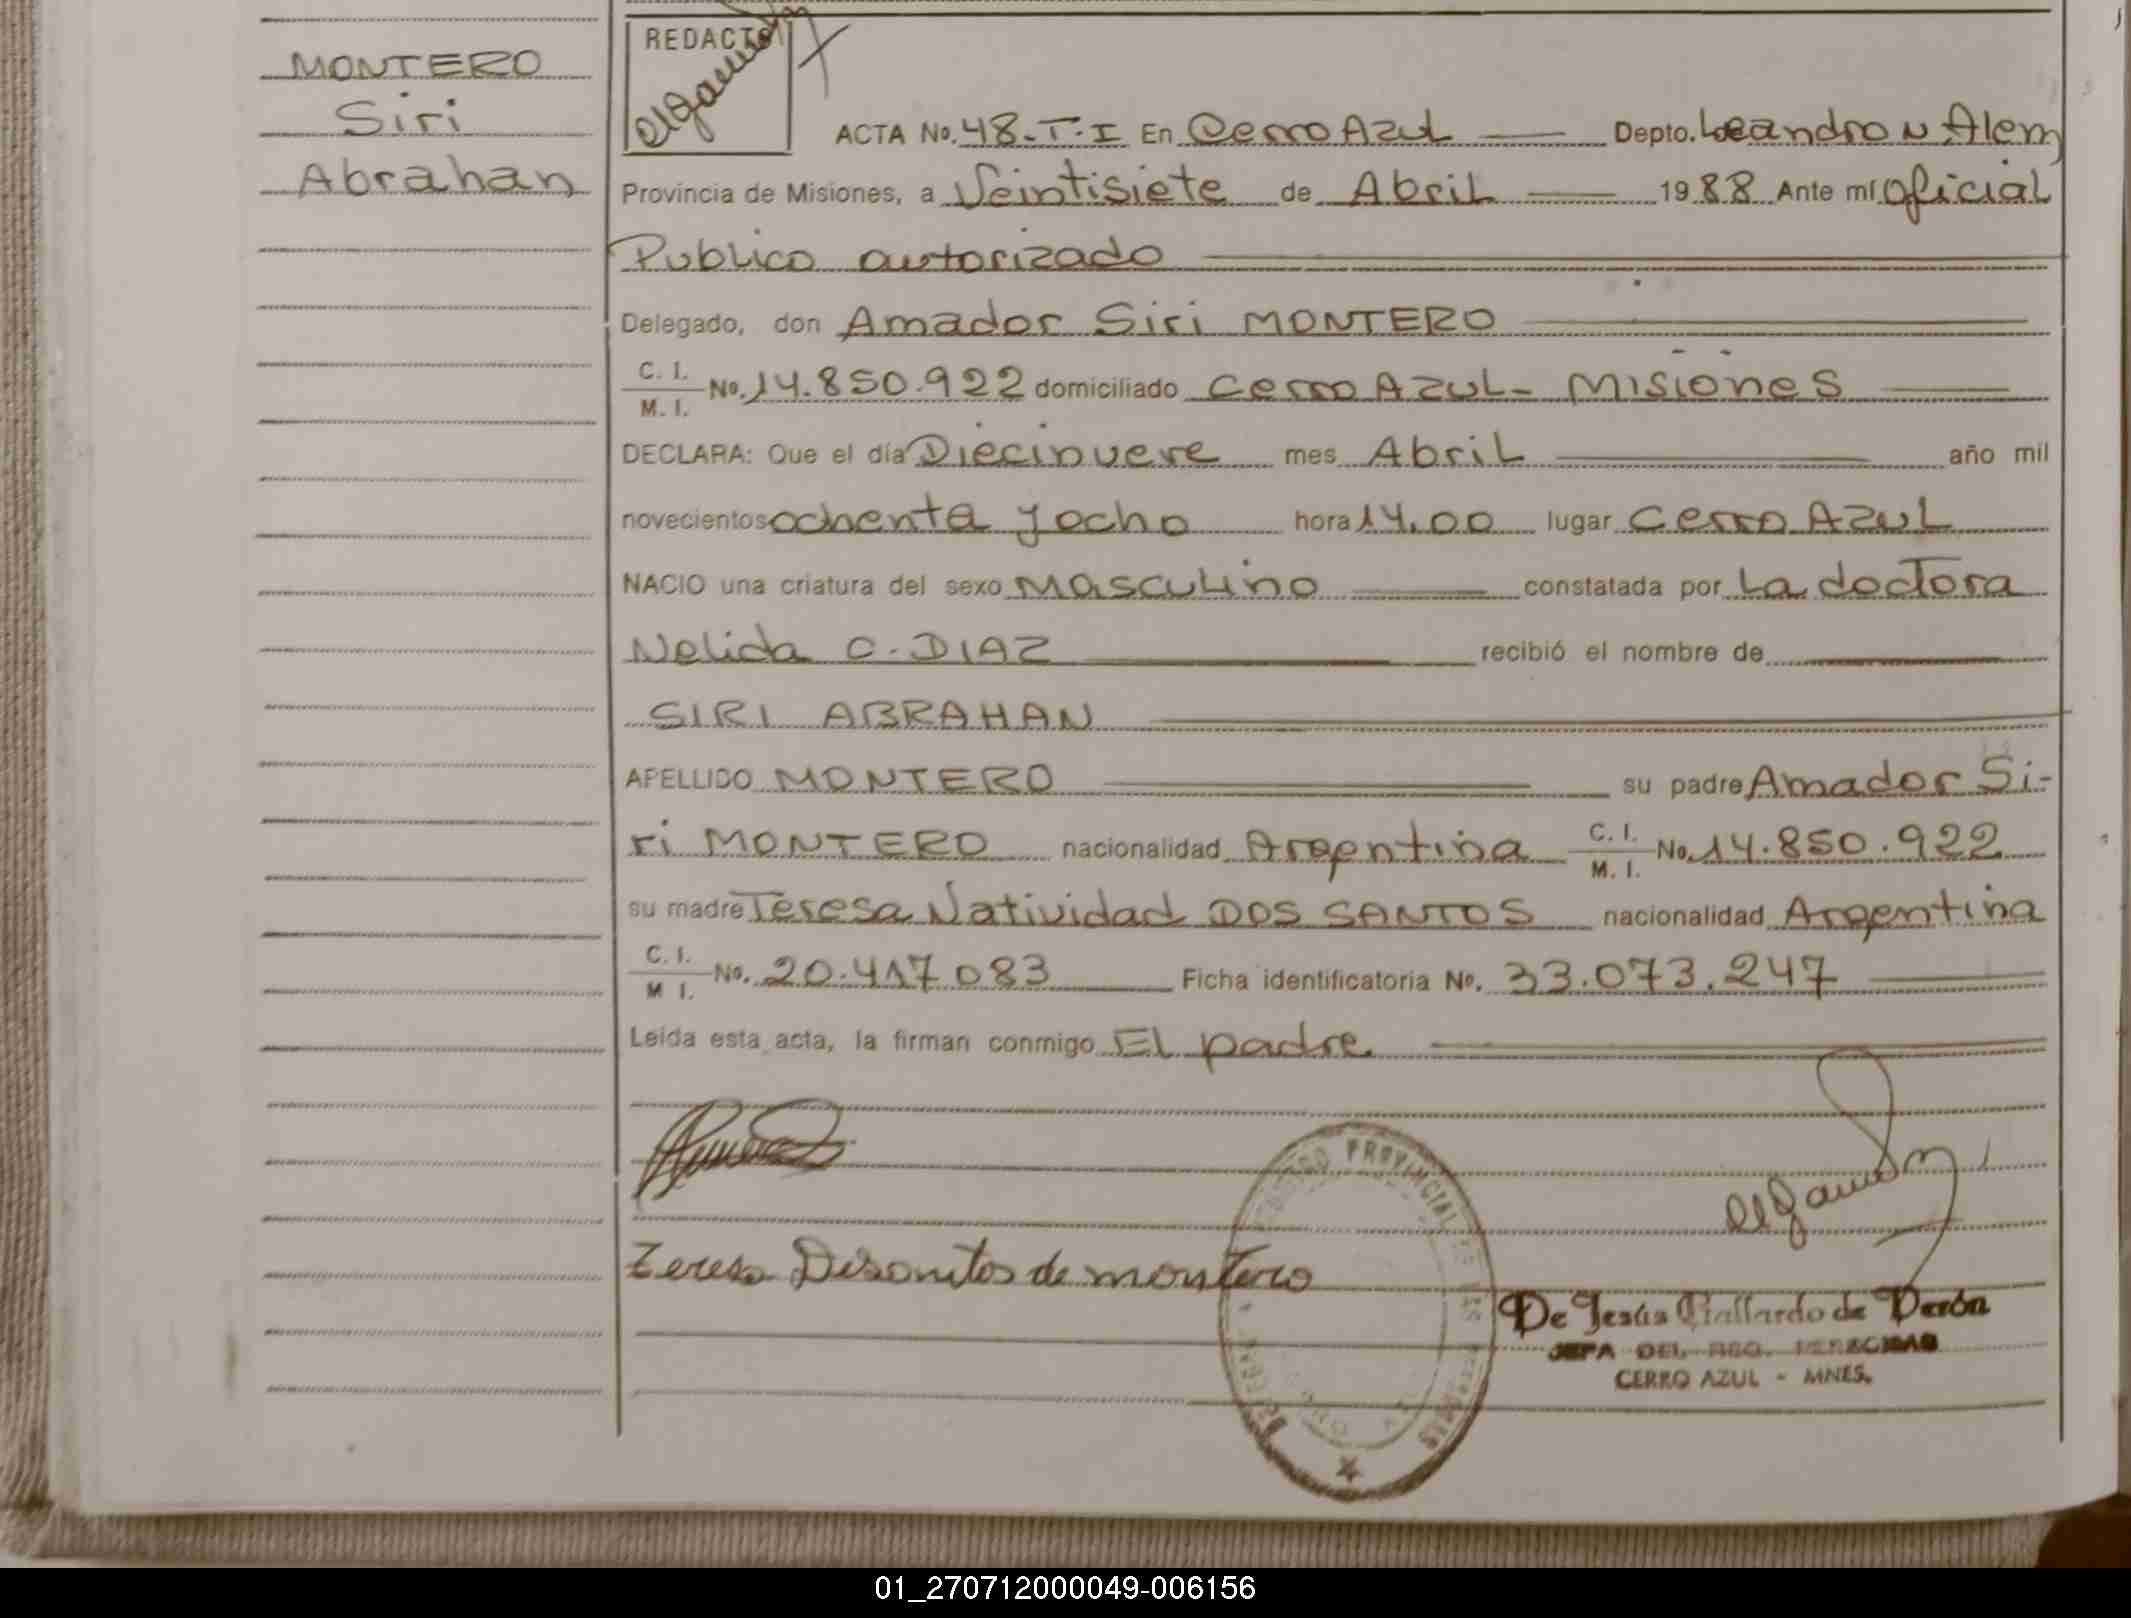 MONTERO
Siri
Abrahan
REDACTO
ACTA No. 48-T-I En Cerro Azul Depto. Leandro N Alem
Provincia de Misiones, a Veintisiete de Abril 1988 Ante mí oficial
Publico autorizado
Delegado, don Amador Siri MONTERO
C. I.
M. I. No. 14.850.922 domiciliado Cerro Azul - Misiones
DECLARA: Que el día Diecinueve mes Abril año mil
novecientos ochenta y ocho hora 14,00 lugar Cerro Azul
NACIO una criatura del sexo Masculino constatada por La doctora
Nelida C. DIAZ recibió el nombre de
SIRI ABRAHAN
APELLIDO MONTERO su padre Amador Si-
ri MONTERO nacionalidad Argentina C. I. M. I. No. 14.850.922
su madre Teresa Natividad DOS SANTOS nacionalidad Argentina
C. I.
M I. No. 20.417.083 Ficha identificatoria No. 33.073.247
Leida esta acta, la firman conmigo El padre
PROVINCIAL
Teresa Disantos de montero
De Jesús Gallardo de Perón
JEFA DEL REG.
CERRO AZUL - MNES.
01_270712000049-006156